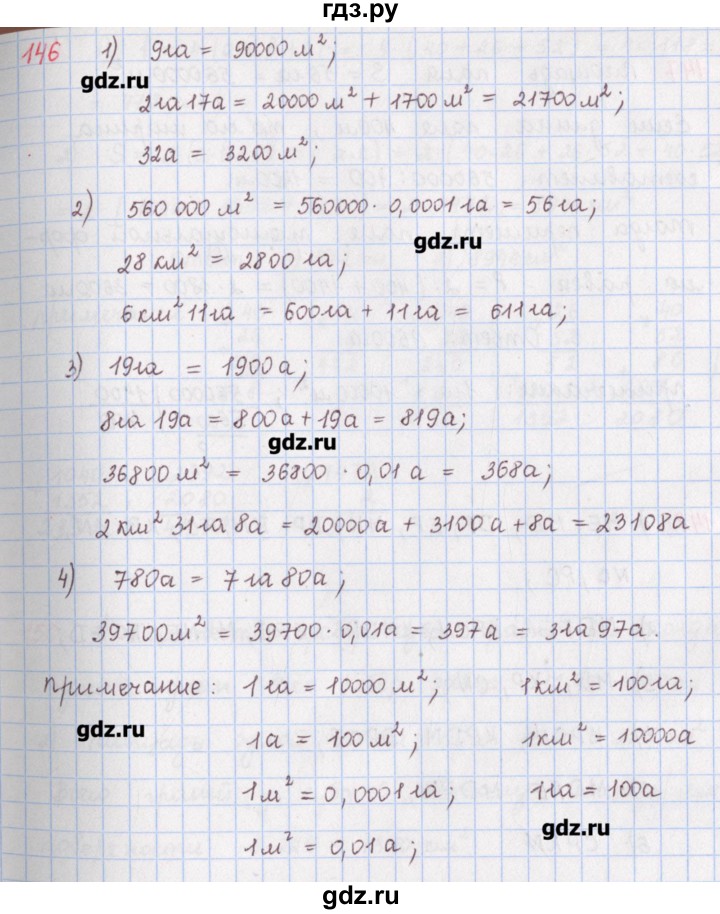 гдз.ру
146 1) 9 га = 90000 м²;
gdz.ru
2 га 17 а = 20000 м² + 1700 м² = 21700 м²;
32 а = 3200 м²;
2) 560 000 м² = 560000 · 0,0001 га = 56 га;
gdz.ru
28 км² = 2800 га;
6 км² 11 га = 600 га + 11 га = 611 га;
3) 19 га = 1900 а;
8 га 19 а = 800 а + 19 а = 819 а;
gdz.ru
36800 м² = 36800 · 0,01 а = 368 а;
2 км² 31 га 8 а = 20000 а + 3100 а + 8 а = 23108 а
4) 780 а = 7 га 80 а;
39700 м² = 39700 · 0,01 а = 397 а = 3 га 97 а.
Примечание: 1 га = 10000 м²; 1 км² = 100 га;
gdz.ru
1 а = 100 м²; 1 км² = 10000 а
1 м² = 0,0001 га; 1 га = 100 а
gdz.ru
1 м² = 0,01 а;
gdz.ru